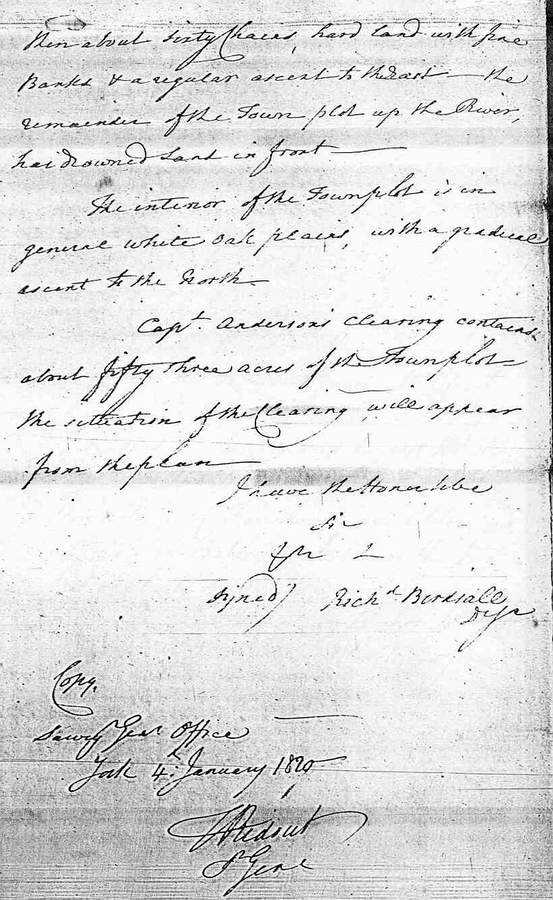 then about sixty Chains, hard land with fine
Banks & a regular ascent to the East — the
remainder of the Town plot up the River,
has drowned Land in front —
The interior of the Town plot is in
general white Oak plains, with a gradual
ascent to the North —
Capt. Anderson's Clearing contains
about fifty three acres of the Town plot —
the situation of the Clearing will appear
from the plan —
I have the Honor to be
Sir
signed) Richd. Birdsall
Copy.
Survr Genl Office
York 4th January 1820
T Ridout
Sr Genl